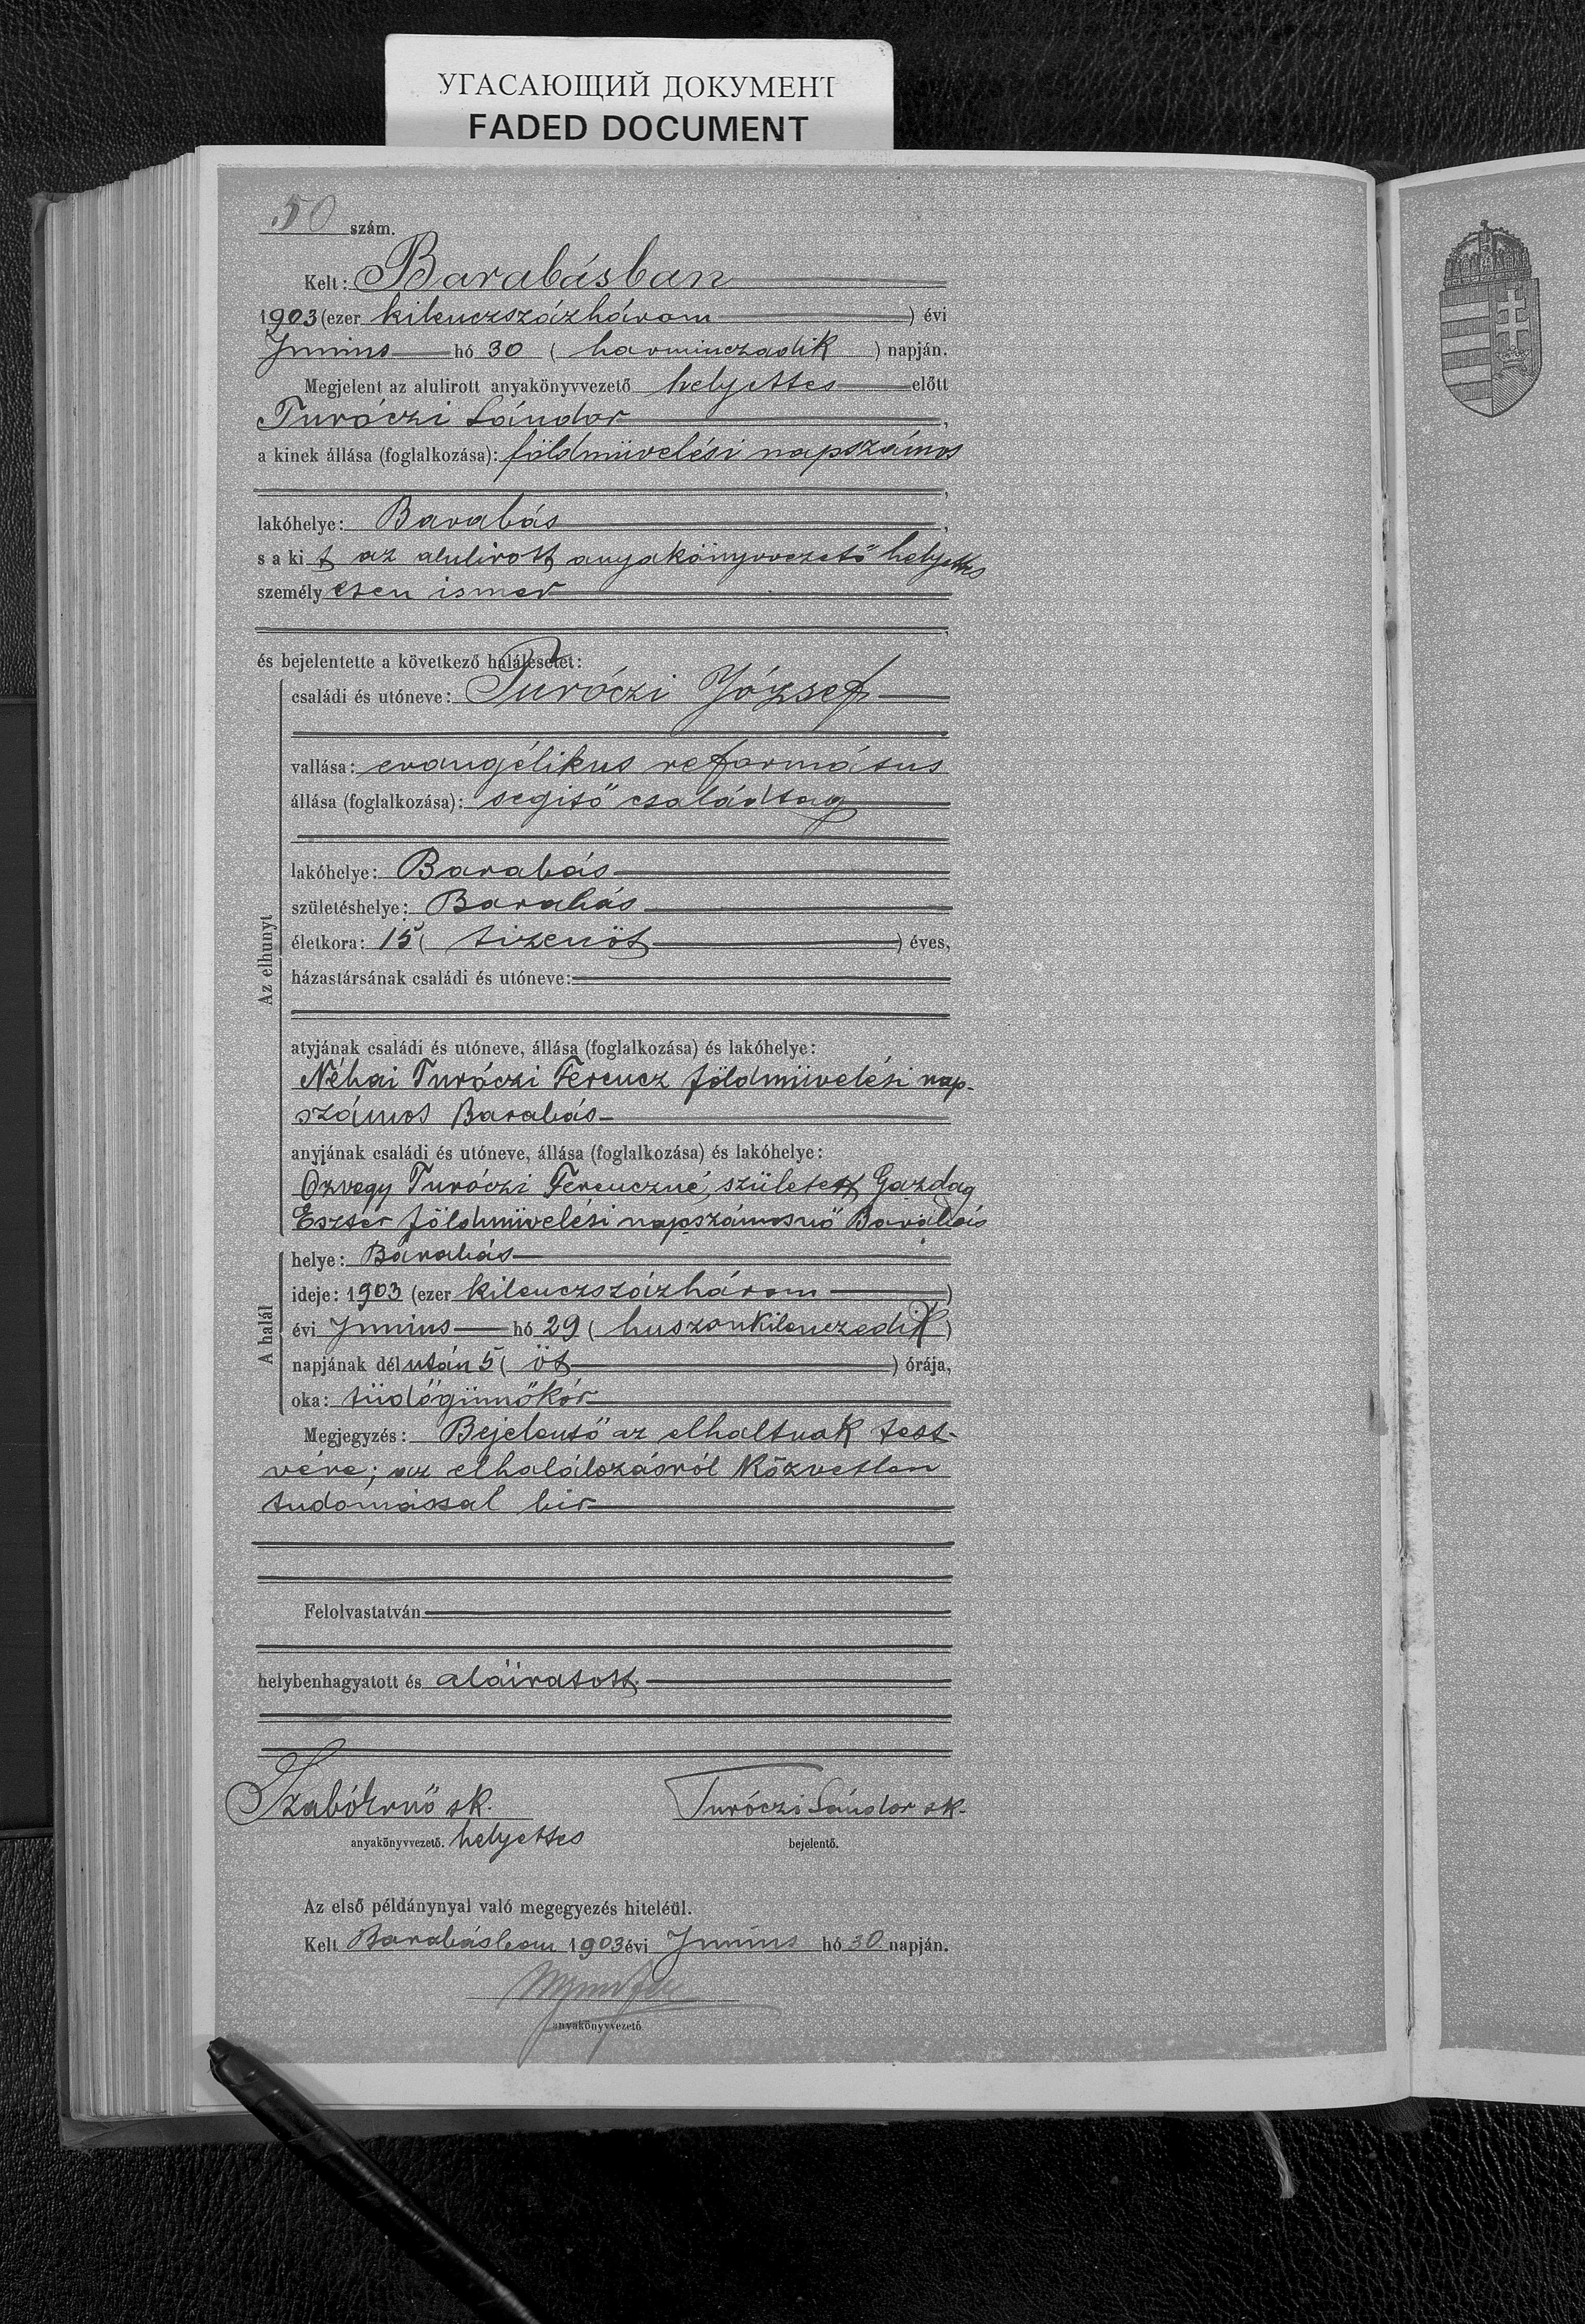 УГАСАЮЩИЙ ДОКУМЕНТ
FADED DOCUMENT
50 szám.
Kelt: Barabásban
1903 (ezer kilenczszázhárom) évi
Junius hó 30 (harminczadik) napján.
Megjelent az alulirott anyakönyvvezető helyettes előtt
Turóczi Sándor,
a kinek állása (foglalkozása): földmüvelési napszámos
,
lakóhelye: Barabás,
s a kit az alulirott anyakönyvvezető helyettes
személyesen ismer
,
és bejelentette a következő halálesetet:
Az elhunyt
családi és utóneve: Turóczi József
vallása: evangélikus református
állása (foglalkozása): segitő családtag
lakóhelye: Barabás
születéshelye: Barabás
életkora: 15 (tizenöt) éves,
házastársának családi és utóneve:
atyjának családi és utóneve, állása (foglalkozása) és lakóhelye:
Néhai Turóczi Ferencz földmüvelési nap-
számos Barabás
anyjának családi és utóneve, állása (foglalkozása) és lakóhelye:
Özvegy Turóczi Ferenczné, született Gazdag
Eszter földmüvelési napszámosnő Barabás
A halál
helye: Barabás
ideje: 1903 (ezer kilenczszázhárom)
évi Junius hó 29 (huszonkilenczedik)
napjának délután 5 (öt) órája,
oka: tüdőgümőkór
Megjegyzés: Bejelentő az elhaltnak test-
vére; az elhalálozásról közvetlen
tudomással bir
Felolvastatván
helybenhagyatott és aláiratott.
Szabó Ernő sk. Turóczi Sándor sk.
anyakönyvvezető. helyettes bejelentő.
Az első példánynyal való megegyezés hiteléül.
Kelt Barabásban 1903 évi Junius hó 30 napján.
anyakönyvvezető